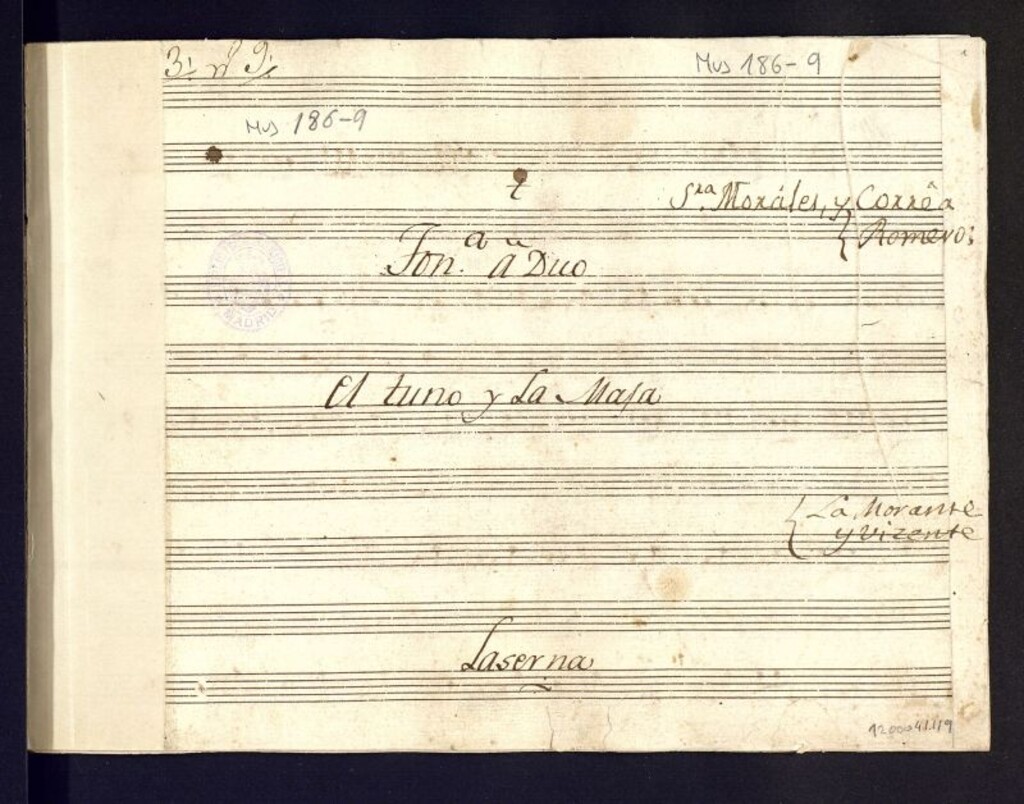 3: nº 9:
Mus 186-9
Mus 186-9
t
Sra. Moráles, y Corrêa
Romero:
Ton.a a Duo
MADRID
El tuno y La Maja
La Morante
y Vizente
Laserna